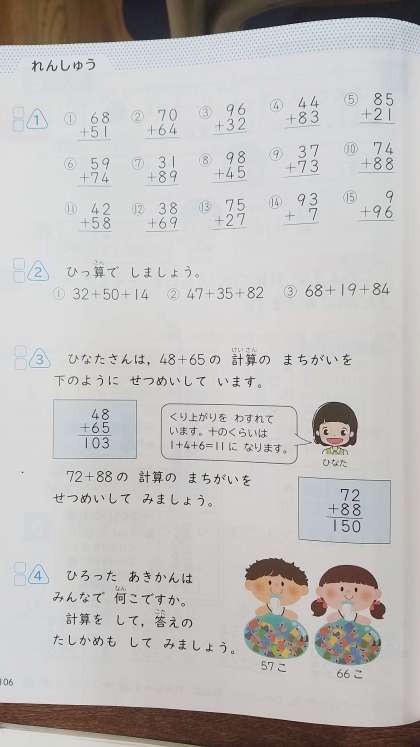 れんしゅう
1
① 68 +51
② 70 +64
③ 96 +32
④ 44 +83
⑤ 85 +21
⑥ 59 +74
⑦ 31 +89
⑧ 98 +45
⑨ 37 +73
⑩ 74 +88
⑪ 42 +58
⑫ 38 +69
⑬ 75 +27
⑭ 93 + 7
⑮ 9 +96
2 ひっ算で しましょう。
さん
① 32+50+14 ② 47+35+82 ③ 68+19+84
3 ひなたさんは，48+65の 計算の まちがいを
けいさん
下のように せつめいして います。
48
+65
103
くり上がりを わすれて
います。十のくらいは
1+4+6=11に なります。
ひなた
72+88の 計算の まちがいを
せつめいして みましょう。
72
+88
150
4 ひろった あきかんは
みんなで 何こですか。
なん
計算を して，答えの
こた
たしかめも して みましょう。
57こ
66こ
106